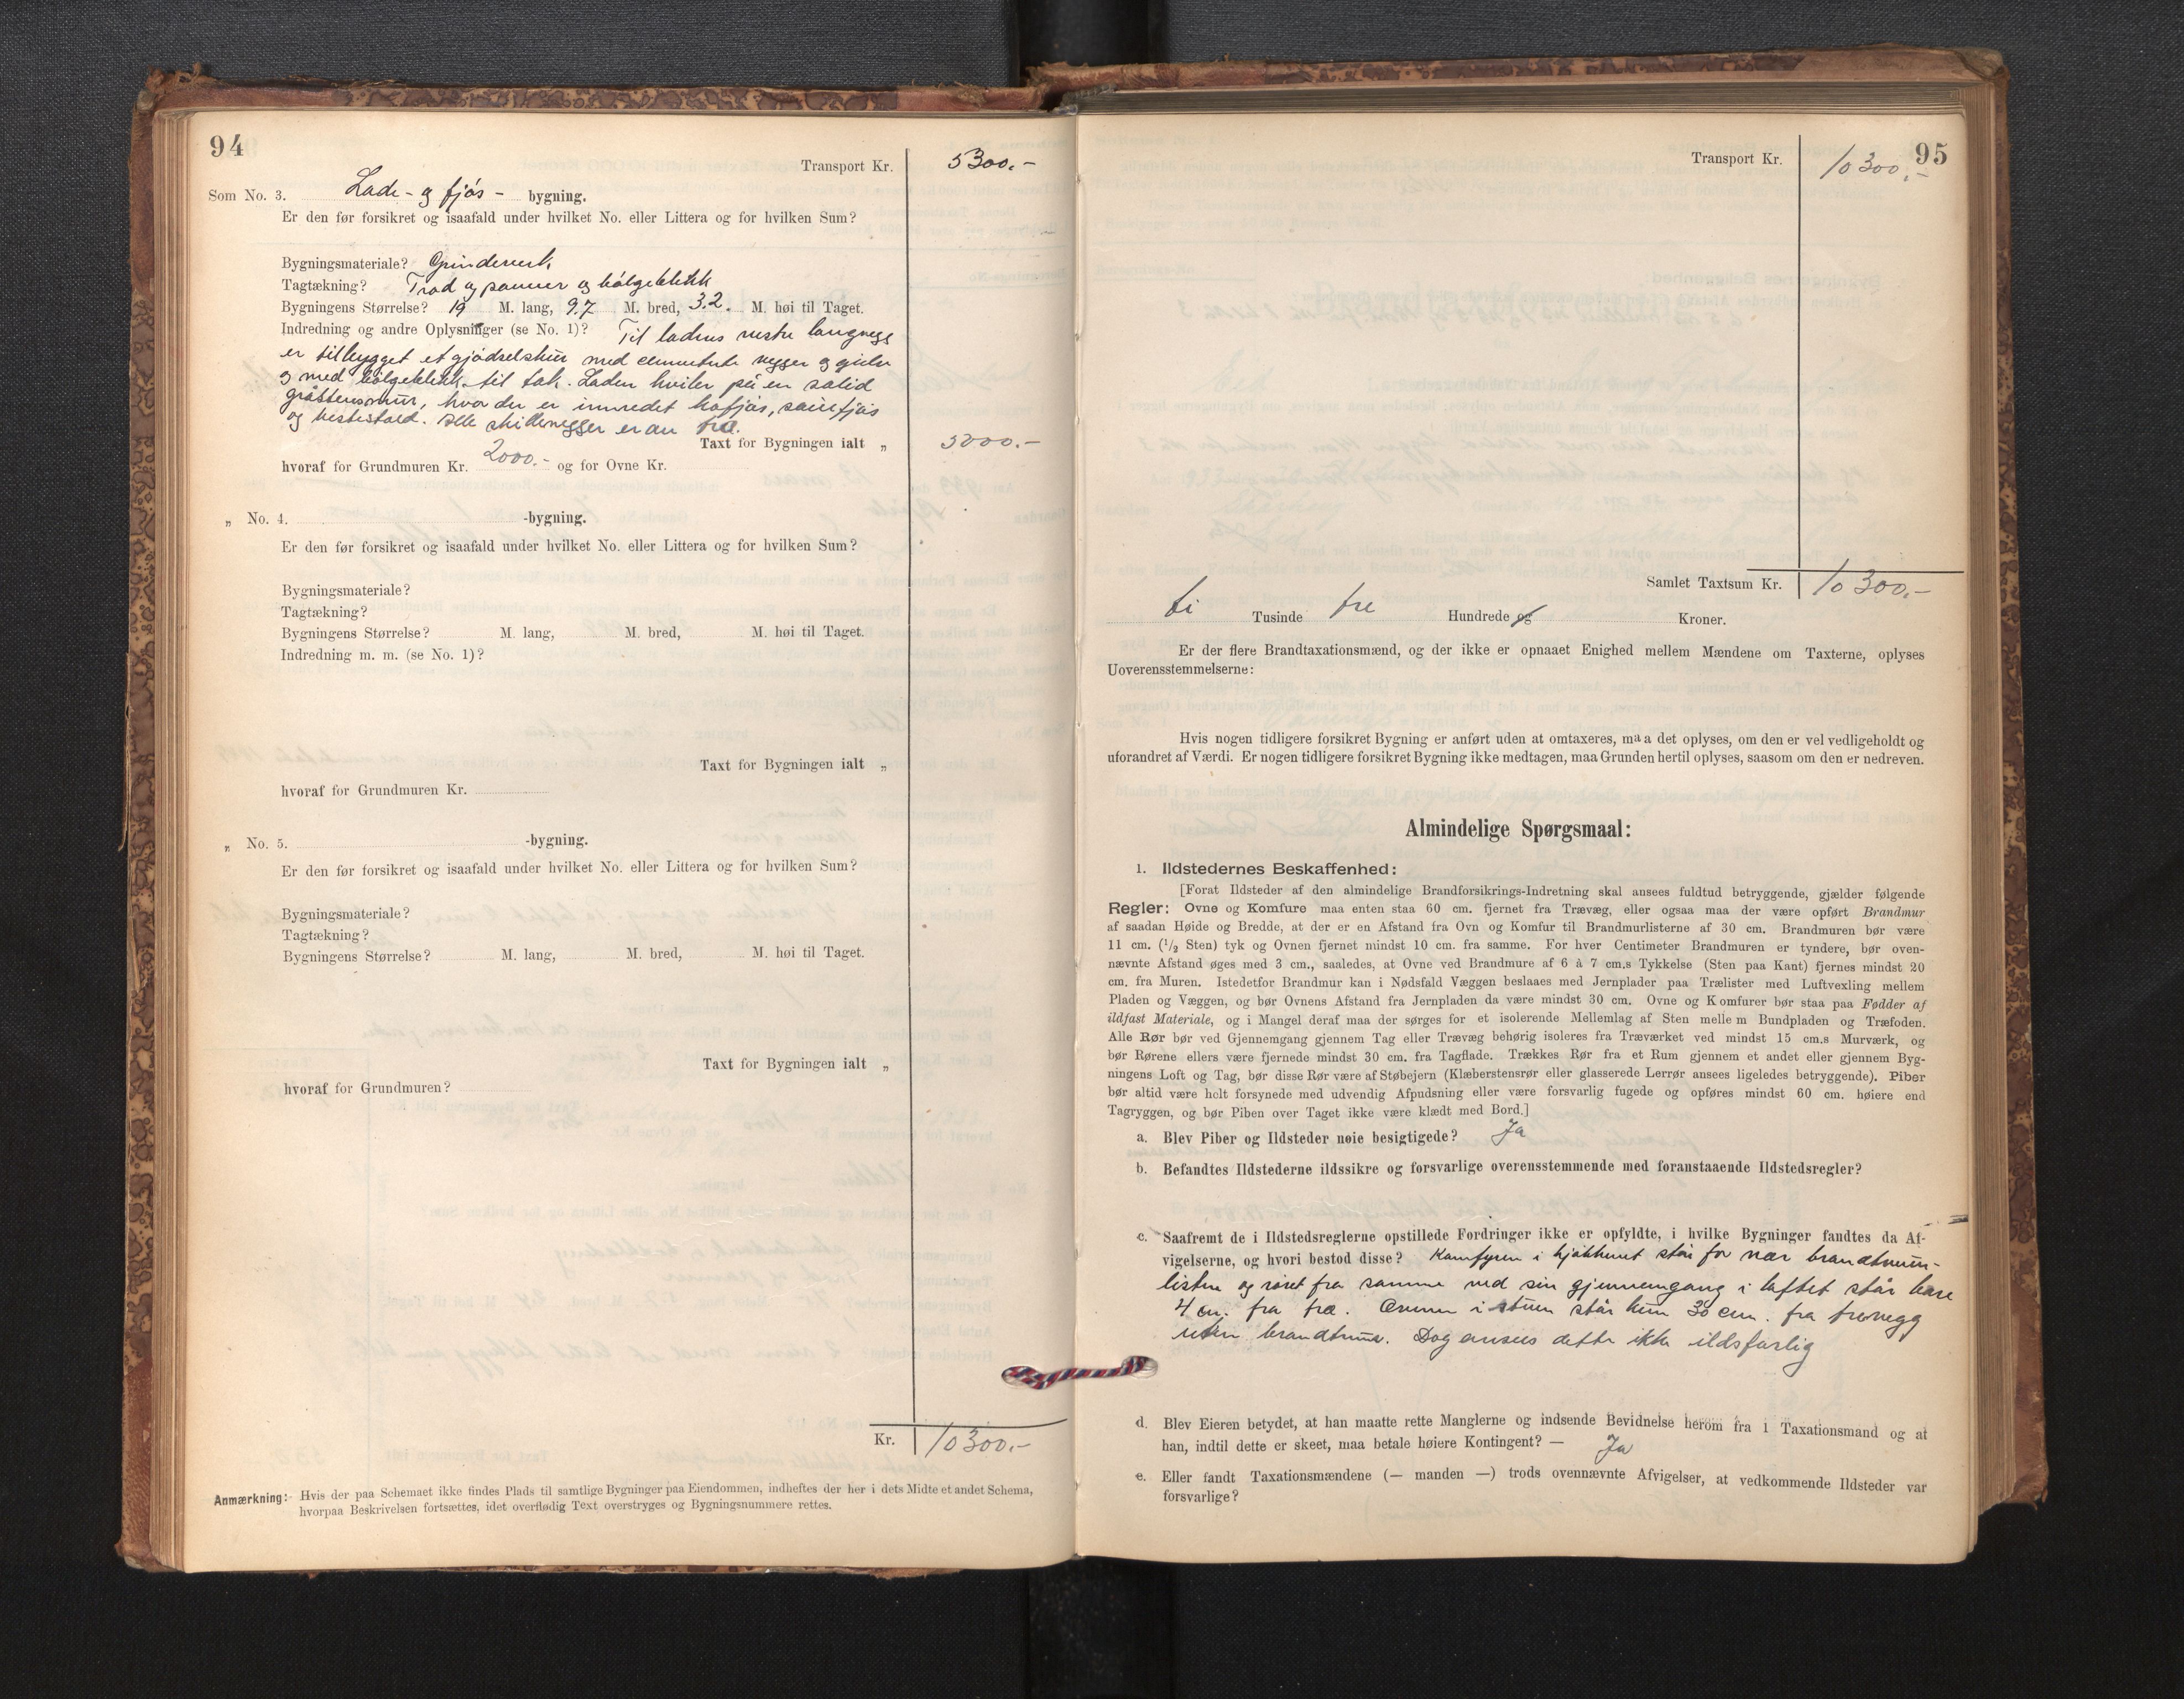 94
Transport Kr. 5300.-
Som No. 3. Lade- og fjøs- bygning.
Er den før forsikret og isaafald under hvilket No. eller Littera og for hvilken Sum?
Bygningsmateriale? Grindverk
Tagtækning? Trod og panner og bølgeblekk
Bygningens Størrelse? 19 M. lang, 9.7 M. bred, 3.2. M. høi til Taget.
Indredning og andre Oplysninger (se No. 1)? Til ladens vestre langvegg
er tilbygget et gjødselshus med cementerte vegger og gulv
og med bølgeblekk til tak. Laden hviler på en solid
gråstensmur, hvor der er innredet kofjøs, sauefjøs
og hestestald. Alle skillevegger er av tre.
Taxt for Bygningen ialt „ 5000.-
hvoraf for Grundmuren Kr. 2000.- og for Ovne Kr.
„ No. 4. -bygning.
Er den før forsikret og isaafald under hvilket No. eller Littera og for hvilken Sum?
Bygningsmateriale?
Tagtækning?
Bygningens Størrelse? M. lang, M. bred, M. høi til Taget.
Indredning m. m. (se No. 1)?
Taxt for Bygningen ialt „
hvoraf for Grundmuren Kr.
„ No. 5. -bygning.
Er den før forsikret og isaafald under hvilket No. eller Littera og for hvilken Sum?
Bygningsmateriale?
Tagtækning?
Bygningens Størrelse? M. lang, M. bred, M. høi til Taget.
Taxt for Bygningen ialt „
hvoraf for Grundmuren?
Kr. 10300.-
Anmærkning: Hvis der paa Schemaet ikke findes Plads til samtlige Bygninger paa Eiendommen, indheftes der her i dets Midte et andet Schema,
hvorpaa Beskrivelsen fortsættes, idet overflødig Text overstryges og Bygningsnummere rettes.
95
Transport Kr. 10300.-
Samlet Taxtsum Kr. 10300.-
ti Tusinde tre Hundrede og Kroner.
Er der flere Brandtaxationsmænd, og der ikke er opnaaet Enighed mellem Mændene om Taxterne, oplyses
Uoverensstemmelserne:
Hvis nogen tidligere forsikret Bygning er anført uden at omtaxeres, maa det oplyses, om den er vel vedligeholdt og
uforandret af Værdi. Er nogen tidligere forsikret Bygning ikke medtagen, maa Grunden hertil oplyses, saasom om den er nedreven.
Almindelige Spørgsmaal:
1. Ildstedernes Beskaffenhed:
[Forat Ildsteder af den almindelige Brandforsikrings-Indretning skal ansees fuldtud betryggende, gjælder følgende
Regler: Ovne og Komfure maa enten staa 60 cm. fjernet fra Trævæg, eller ogsaa maa der være opført Brandmur
af saadan Høide og Bredde, at der er en Afstand fra Ovn og Komfur til Brandmurlisterne af 30 cm. Brandmuren bør være
11 cm. (1/2 Sten) tyk og Ovnen fjernet mindst 10 cm. fra samme. For hver Centimeter Brandmuren er tyndere, bør oven-
nævnte Afstand øges med 3 cm., saaledes, at Ovne ved Brandmure af 6 à 7 cm.s Tykkelse (Sten paa Kant) fjernes mindst 20
cm. fra Muren. Istedetfor Brandmur kan i Nødsfald Væggen beslaaes med Jernplader paa Trælister med Luftvexling mellem
Pladen og Væggen, og bør Ovnens Afstand fra Jernpladen da være mindst 30 cm. Ovne og Komfurer bør staa paa Fødder af
ildfast Materiale, og i Mangel deraf maa der sørges for et isolerende Mellemlag af Sten mellem Bundpladen og Træfoden.
Alle Rør bør ved Gjennemgang gjennem Tag eller Trævæg behørig isoleres fra Træværket ved mindst 15 cm.s Murværk, og
bør Rørene ellers være fjernede mindst 30 cm. fra Tagflade. Trækkes Rør fra et Rum gjennem et andet eller gjennem Byg-
ningens Loft og Tag, bør disse Rør være af Støbejern (Klæberstensrør eller glasserede Lerrør ansees ligeledes betryggende). Piber
bør altid være helt forsynede med udvendig Afpudsning eller være forsvarlig fugede og opføres mindst 60 cm. høiere end
Tagryggen, og bør Piben over Taget ikke være klædt med Bord.]
a. Blev Piber og Ildsteder nøie besigtigede? Ja
b. Befandtes Ildstederne ildssikre og forsvarlige overensstemmende med foranstaaende Ildstedsregler?
c. Saafremt de i Ildstedsreglerne opstillede Fordringer ikke er opfyldte, i hvilke Bygninger fandtes da Af-
vigelserne, og hvori bestod disse? Komfyren i kjøkkenet står for nær brandmur-
listen og røret fra samme ved sin gjennemgang i loftet står bare
4 cm. fra tre. Ovnen i stuen står kun 30 cm. fra trevegg
uten brandmur. Dog ansees dette ikke ildsfarlig
d. Blev Eieren betydet, at han maatte rette Manglerne og indsende Bevidnelse herom fra 1 Taxationsmand og at
han, indtil dette er skeet, maa betale høiere Kontingent? — Ja
e. Eller fandt Taxationsmændene (— manden —) trods ovennævnte Afvigelser, at vedkommende Ildsteder var
forsvarlige?